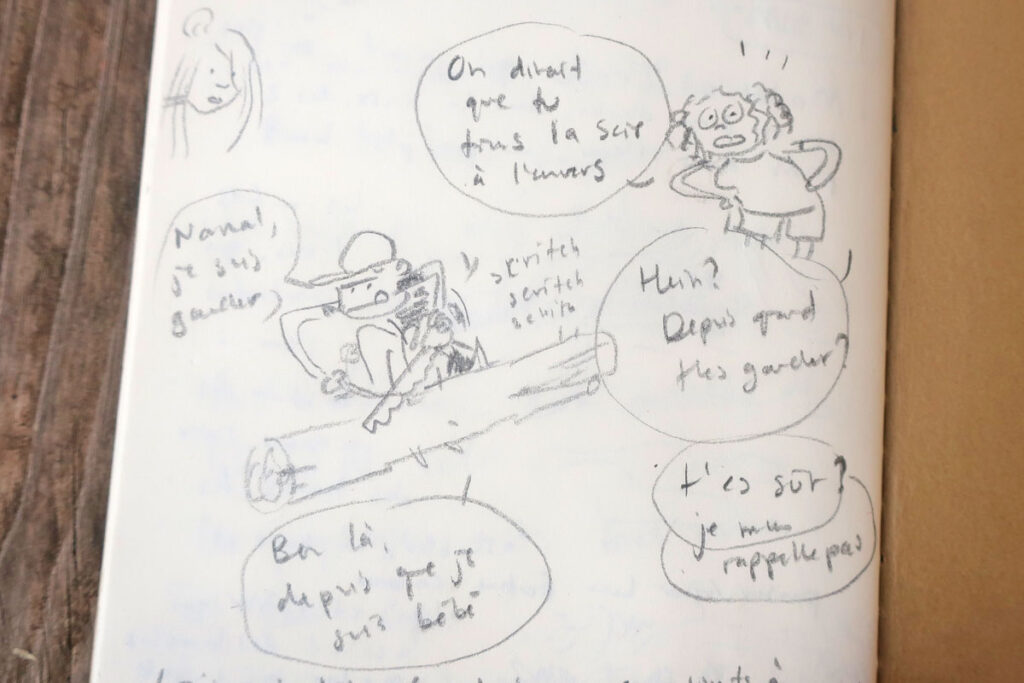 On dirait
que tu
tiens la scie
à l'envers
Nanal,
je suis
gaucher,
scritch
scritch
scritch
Hein?
Depuis quand
t'es gaucher?
Ben là,
depuis que je
suis bébé
t'es sûr?
je m'en
rappelle pas